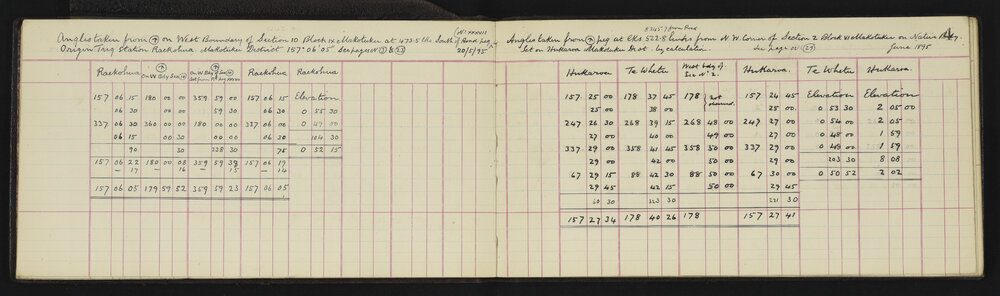 Angles taken from ⊙ on West Boundary of Section 10 Block IX Makotuku at 473.5 lks South of Road peg No XXXVII
Origin Trig Station Raekohua. Makotuku District 157° 06' 05" See pages No 3 & 23 20/5/95
Raekohua on W Bdy Sec 10 on W Bdy Sec 10 Raekohua Raekohua
157 06 15 180 00 00 359 59 00 157 06 15 Elevation
06 30 00 00 59 30 06 30 0 55 30
337 06 30 360 00 00 180 00 00 337 06 00 0 49 00
06 15 00 30 00 30 06 30 104 30
90 30 238 30 75 0 52 15
157 06 22 180 00 08 359 59 39 157 06 19
— 17 — 16 — 15 — 14
157 06 05 179 59 52 359 59 23 157 06 05
Angles taken from ⊙ peg at Lks 522.8 links from N.W. Corner of Section 2 Block VI Makotuku on Native Bdy.
Set on Hukarua Makotuku Dist. by calculation. See page No 27 June 1895
Hukarua Te Whetu West bdy of Sec No 2. Hukarua. Te Whetu Hukarua.
157 25 00 178 37 45 178 not observed. 157 24 45 Elevation Elevation
25 00 38 00 25 00 0 53 30 2 05 00
247 26 30 268 39 15 268 48 00 247 27 00 0 54 00 2 05
27 00 40 00 49 00 27 00 0 48 00 1 59
337 29 00 358 41 45 358 50 00 337 29 00 0 48 00 1 59
29 00 42 00 50 00 29 00 203 30 8 08
67 29 15 88 42 30 88 50 00 67 30 00 0 50 52 2 02
29 45 42 15 50 00 29 45
60 30 323 30 221 30
157 27 34 178 40 26 178 157 27 41